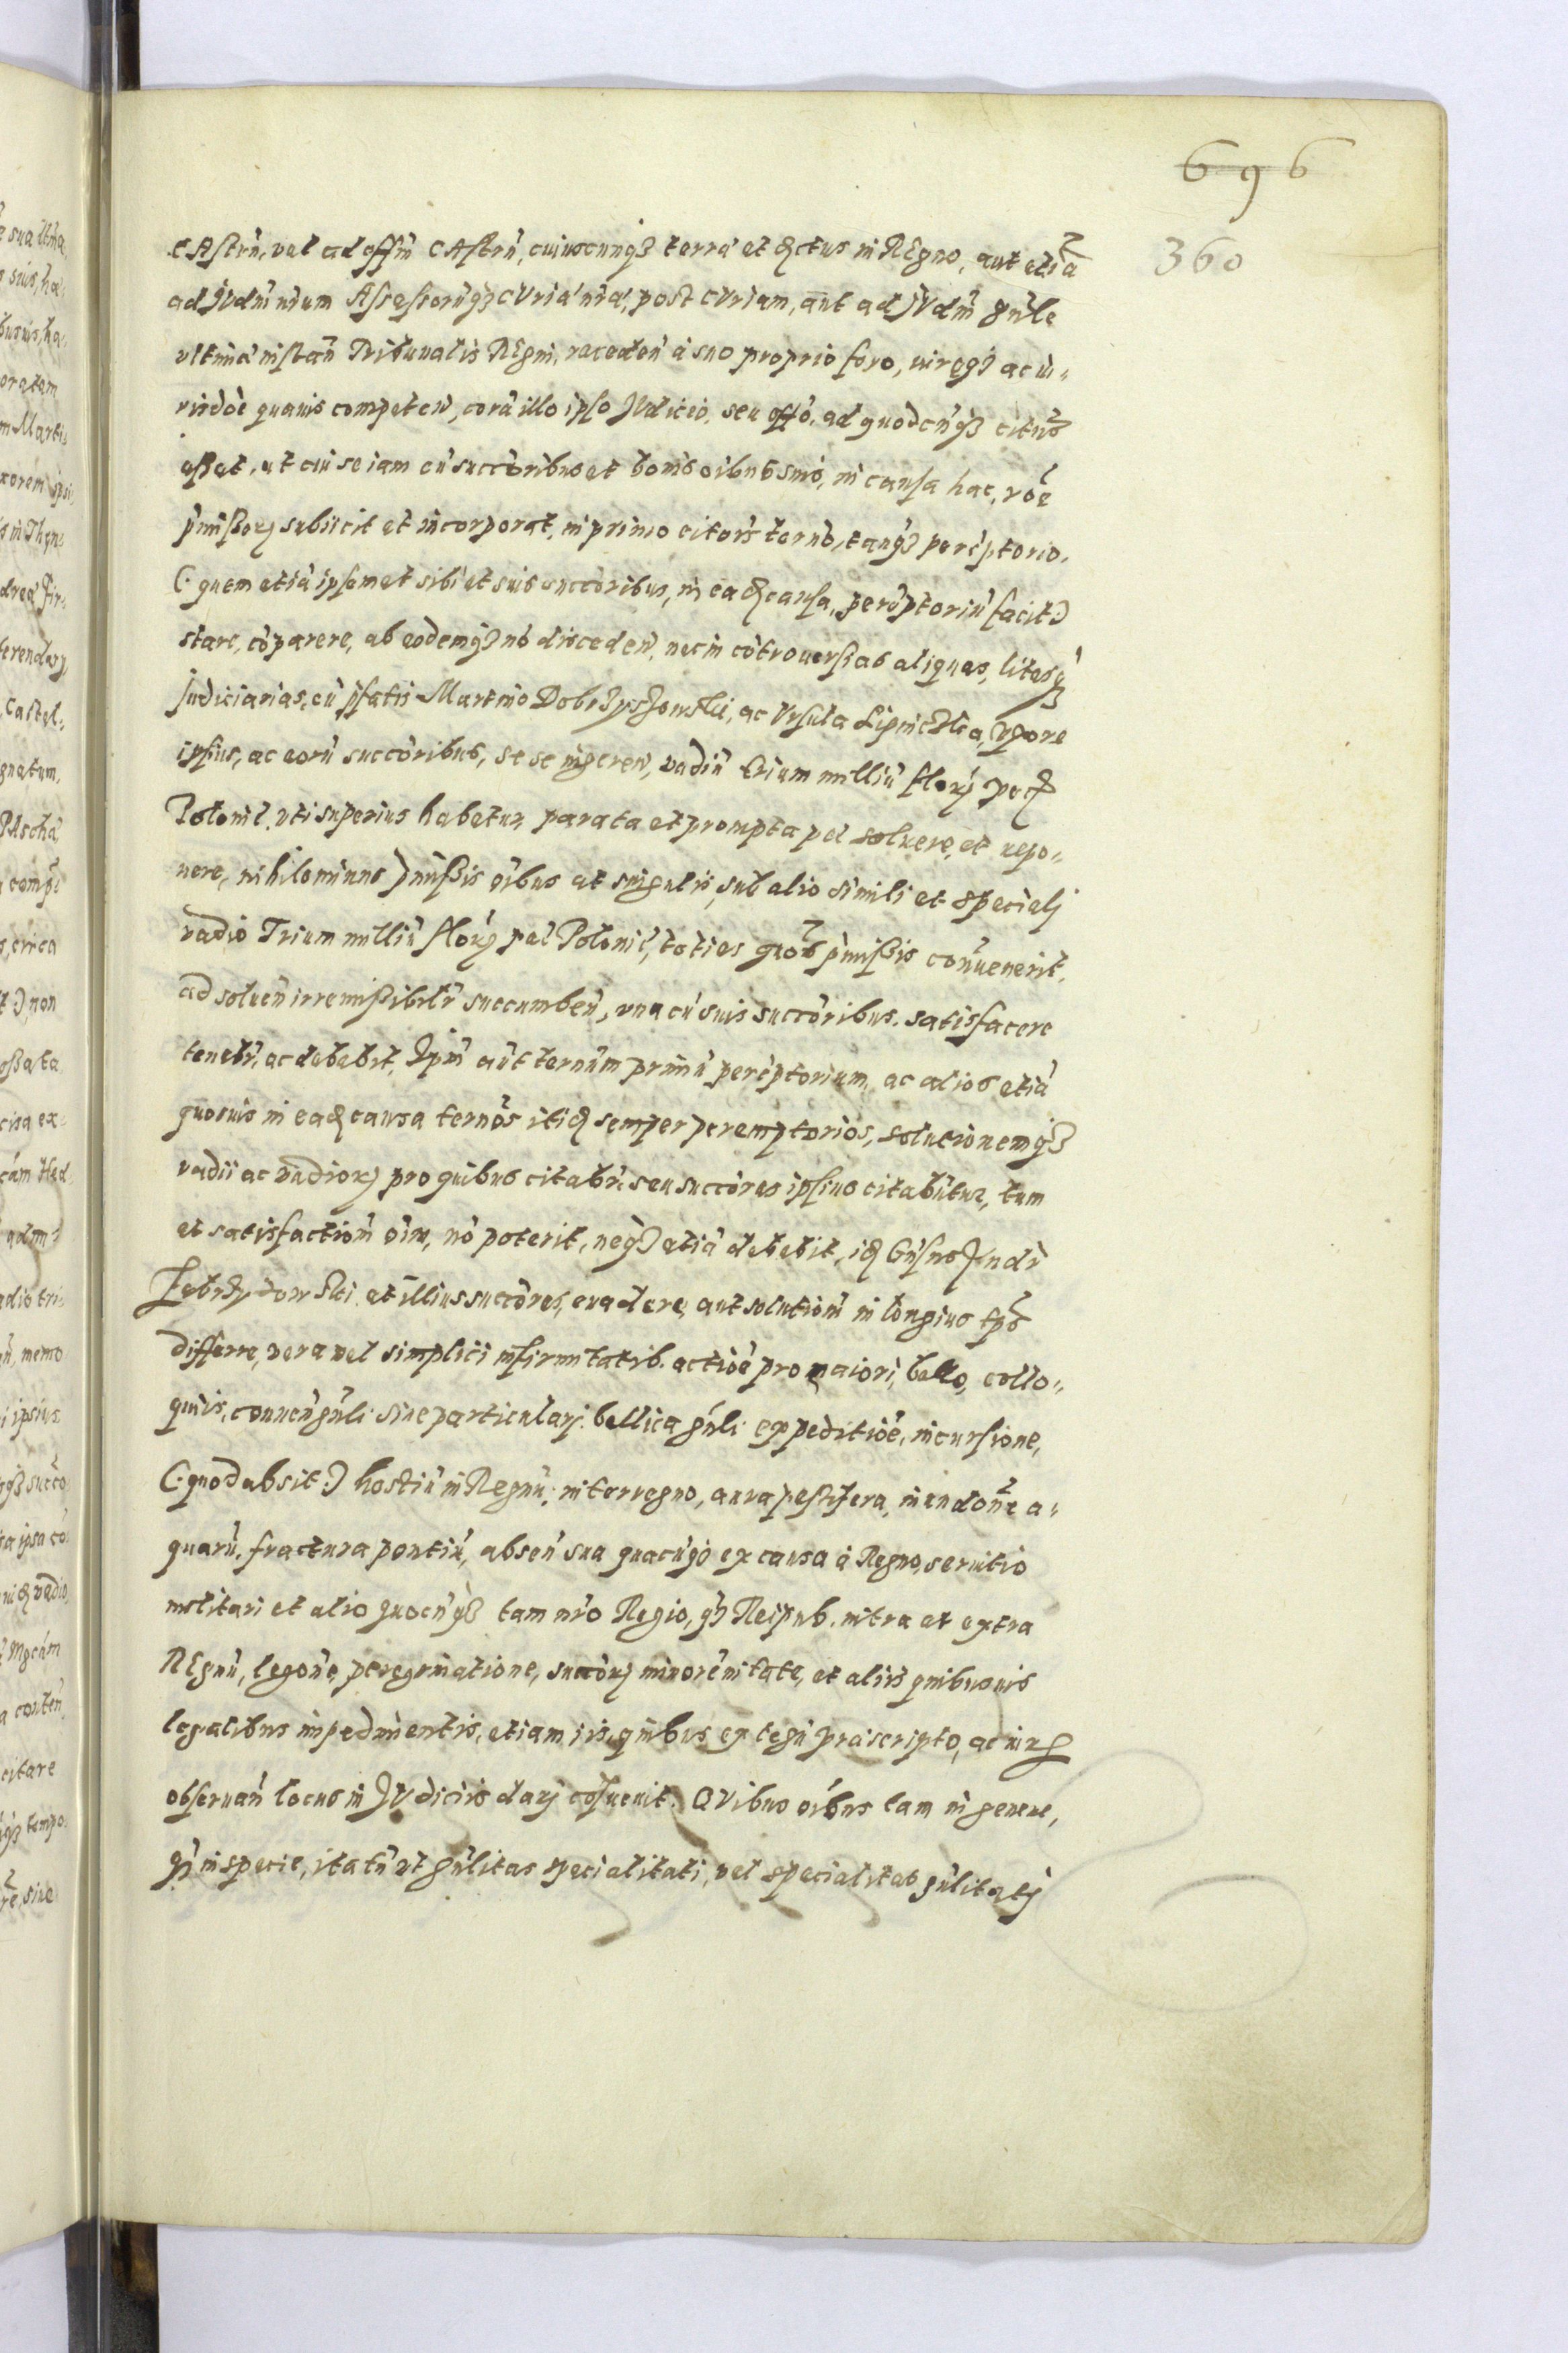 696
360
CAstrn̄, vel ad offm̄ CAstrn̄, cuiuscunq3 terrae et dctus in REgno, aut etiā
ad JVdm̄ nrum Assessorūq3 CVriae nrae, post CVriam, aut ad JVdm̄ gn̄le
vltimae instan̄ Tribunalis REgni, receden̄ à suo proprio foro, iureq3 ac iu⸗
risdōe quauis competen̄, corā illo ipso JVdicio, seu offo, ad quodcūq3 citus
esset, ut cui se iam cū succōribus et bonis oibus suis, in causa hac, rōe
p̄missor subiicit et incorporat, in primo citōis termō, tanq3 perēptorio.
(: quem etiā ipsemet sibi et suis succōribus, in ead causa, perēptoriū facit :)
stare, cōparere, ab eodemq3 nō disceden̄, nec in cōtrouersias aliquas, litesq3
Judiciarias, cū p̄fatis Martino Dobrzyszowski, ac Vrsula Lipnicka, vxore
ipsius, ac eorū succōribus, se se ingeren̄, vadiū trium milliū flor pec
Polonil. vti superius habetur parata et prompta pel soluere, et repo⸗
nere, nihilominus p̄missis oībus at singulis, sub alio simili et speciali
vadio Trium milliū flor pel Polonil, toties quo p̄missis conuenerit,
ad soluen̄ irremissibilr̄ succumben̄, vna cū suis succōribus. satisfacere
tenebr̄, ac debebit, Ipm̄ aūt termm primū perēptorium, ac alios etiā
quosuis in ead causa termos itid semper peremptorios, solutionemq3
vadii ac vadior pro quibus citabr̄, seu succōres ipsius citabūtur, tum
et satisfactiōm̄ oīm, nō poterit, neq3 etiā debebit, id Gn̄sus Andr̄
Zebrzydowski et illius succōres, euadere, aut solutiōm̄ in longius tp̄s
differre, vera vel simplici infirmitatib. actiōe pro maiori, bello, collo⸗
quiis, conuen̄ gn̄li siue particulari. bellica gn̄li expeditiōe, incursione,
(: quod absit :) hostiū in Regnū, interregno, aura pestifera, inundōne a⸗
quarū, fractura pontiū, absen̄ sua quacūq3 ex causa à Regno, seruitio
militari et alio quocūq3 tam nr̄o Regio, q3 Reipub. intra et extra
REgnū, legōne, peregrinatione, succōr minorēnitate, et aliis quibusuis
legalibus impedimentis, etiam iis, quibus ex legū praescripto, ac iur
obseruan̄ locus in JVdiciis dari cōsueuit. QVibus oībus tam in genere,
q3 in specie, ita tn̄ vt gn̄litas specialitati, vel specialitas gn̄litati